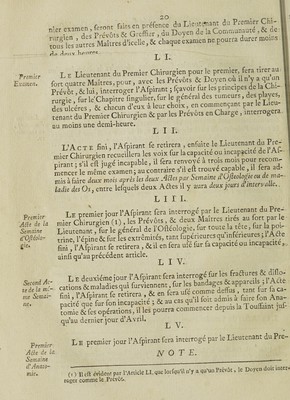 20
nier examen, seront faits en présence du Lieutenant du Premier Chi-
rurgien, des Prévôts & Greffier, du Doyen de la Communauté, & de
tous les autres Maîtres d'icelle, & chaque examen ne pourra durer moins
de deux heures.
LI.
Premier
Examen.
LE Lieutenant du Premier Chirurgien pour le premier, sera tirer au
fort quatre Maîtres, pour, avec les Prévôts & Doyen où il n'y a qu'un
Prévôt, & lui, interroger l'Aspirant; sçavoir sur les principes de la Chi-
rurgie, sur le Chapitre singulier, sur le général des tumeurs, des playes,
des ulceres, & chacun d'eux à leur choix, en commençant par le Lieu-
tenant du Premier Chirurgien & par les Prévôts en Charge, interrogera
au moins une demi-heure.
LII.
L'ACTE fini, l'Aspirant se retirera, ensuite le Lieutenant du Pre-
mier Chirurgien recueillera les voix sur la capacité ou incapacité de l'As-
pirant; s'il est jugé incapable, il sera renvoyé à trois mois pour recom-
mencer le même examen; au contraire s'il est trouvé capable, il sera ad-
mis à faire deux mois après les deux Actes par Semaine d'Ostéologie ou de ma-
ladie des Os, entre lesquels deux Actes il y aura deux jours d'intervalle.
LIII.
Premier
Acte de la
Semaine
d'Ostéolo-
gie.
LE premier jour l'Aspirant sera interrogé par le Lieutenant du Pre-
mier Chirurgien (1), les Prévôts, & deux Maîtres tirés au sort par le
Lieutenant, sur le général de l'Ostéologie, sur toute la tête, sur la poi-
trine, l'épine & sur les extrémités, tant supérieures qu'inférieures; l'Acte
fini, l'Aspirant se retirera, & il en sera usé sur sa capacité ou incapacité,
ainsi qu'au précédent article.
LIV.
Second Ac-
te de la mê-
me Semai-
ne.
LE deuxiéme jour l'Aspirant sera interrogé sur les fractures & dislo-
cations & maladies qui surviennent, sur les bandages & appareils; l'Acte
fini, l'Aspirant se retirera, & en sera usé comme dessus, tant sur la ca-
pacité que sur son incapacité; & au cas qu'il soit admis à faire son Ana-
tomie & ses opérations, il les pourra commencer depuis la Toussaint jus-
qu'au dernier jour d'Avril.
LV.
Premier
Acte de la
Semaine
d'Anato-
mie.
LE premier jour l'Aspirant sera interrogé par le Lieutenant du Pre-
NOTE.
(1) Il est évident par l'Article LI. que lorsqu'il n'y a qu'un Prévôt, le Doyen doit inter-
roger comme le Prévôt.